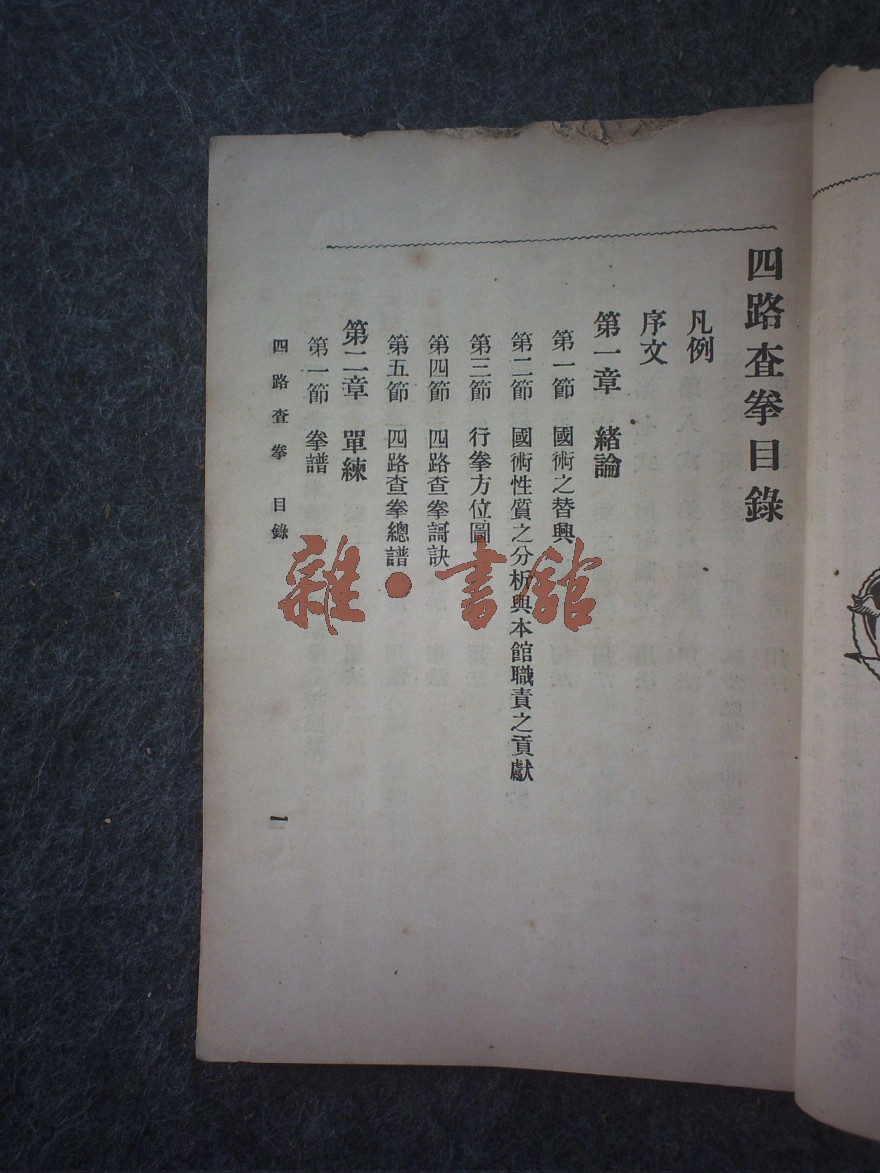 四路査拳目錄
凡例
序文
第一章 緒論
第一節 國術之替興
第二節 國術性質之分析與本館職責之貢獻
第三節 行拳方位圖
第四節 四路査拳謌訣
第五節 四路査拳總譜
第二章 單練
第一節 拳譜
四路査拳 目錄
一
雜·書館